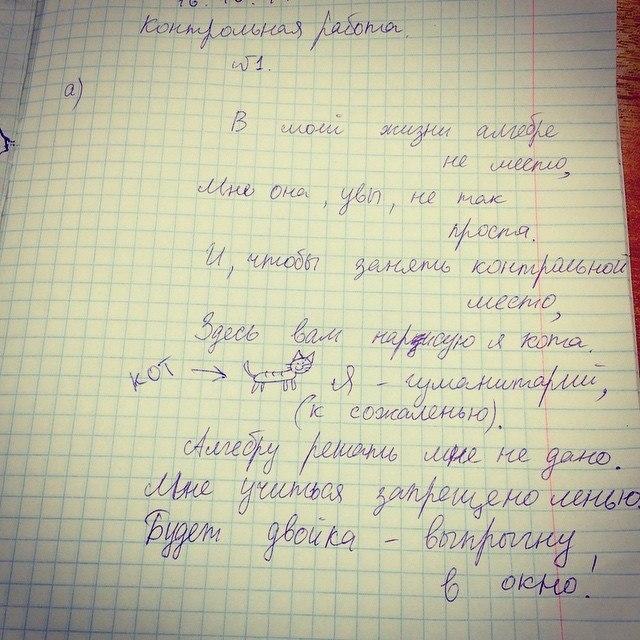 Контрольная работа.
№1.
а)
В моей жизни алгебре
не место,
Мне она, увы, не так
проста.
И, чтобы занять контрольной
место,
Здесь вам нарисую я кота.
кот → Я - гуманитарий,
(к сожаленью).
Алгебру решать мне не дано.
Мне учиться запрещено ленью.
Будет двойка - выпрыгну
в окно!